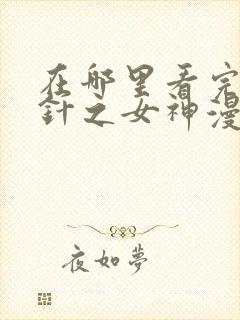 在哪里看完
針之女神漫
夜如夢